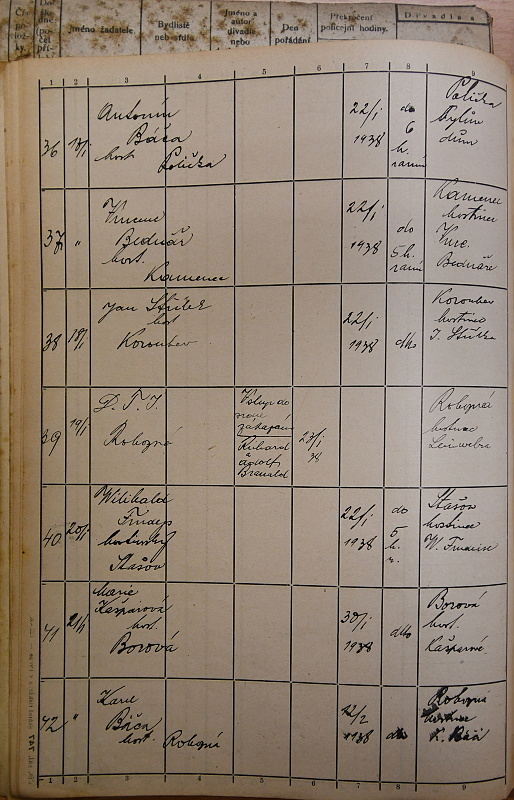 Jméno žadatele.
Bydliště
neb sídlo
Jméno a
autor
divadla
nebo
Den
pořádání
Překročení
policejní hodiny.
Divadla a
1 2 3 4 5 6 7 8 9
36 18/I
Antonín
Báča
host. Polička
22/I
1938
do
6
h.
ranní
Polička
Tylův
dům
37 "
Vincenc
Bednář
host.
Kamenec
22/I
1938
do
5 h.
ranní
Kamenec
hostinec
Vinc.
Bednáře
38 18/I
Jan Střílek
host
Korouhev
22/I
1938
dtto
Korouhev
hostinec
J. Střílka
39 19/I
D. T. J.
Rohozná
Vstup do
zakázán
Richard
a
Adolf
23/I
38
Rohozná
hostinec
40 20/I
Wilibald
hostinský
Stašov
22/I
1938
do
5
h.
r.
Stašov
hostinec
W.
41 21/I
Marie
Kašparová
host.
Borová
30/I
1938
dtto
Borová
host.
Kašparné
42 "
Karel
Báča
host. Rohozná
12/2
1938
Rohozná
hostinec
K.
1 2 3 4 5 6 7 8 9